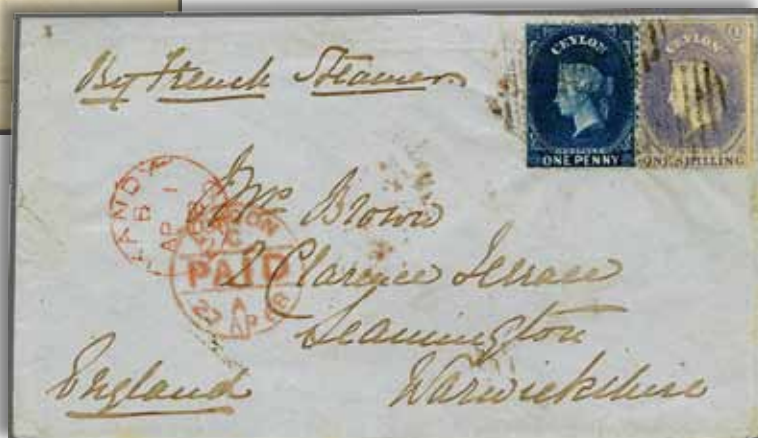 By French Steamer
CEYLON
ONE PENNY
CEYLON
ONE SHILLING
KANDY
AP 1
LONDON
PAID
27 AP 68
Mrs Brown
2 Clarence Terrace
Leamington
Warwickshire
England